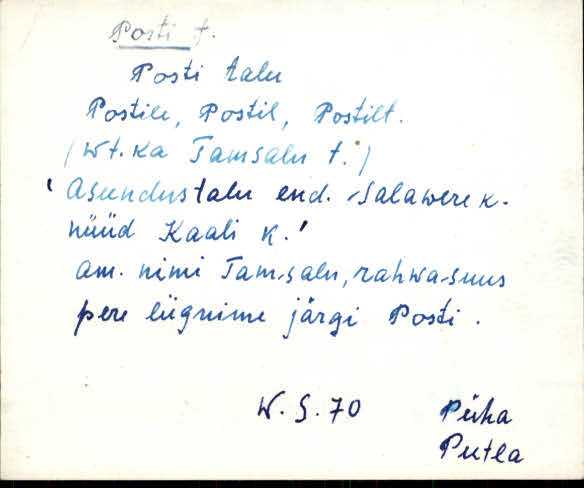 Posti t.
Posti talu
Postile, Postil, Postilt.
(Wt. ka Tamsalu t.)
'Asundustalu end. Salawere k.
nüüd Kaali k.'
am. nimi Tamsalu, rahwa-suus
pere liignime järgi Posti.
W. S. 70 Püha
Putla